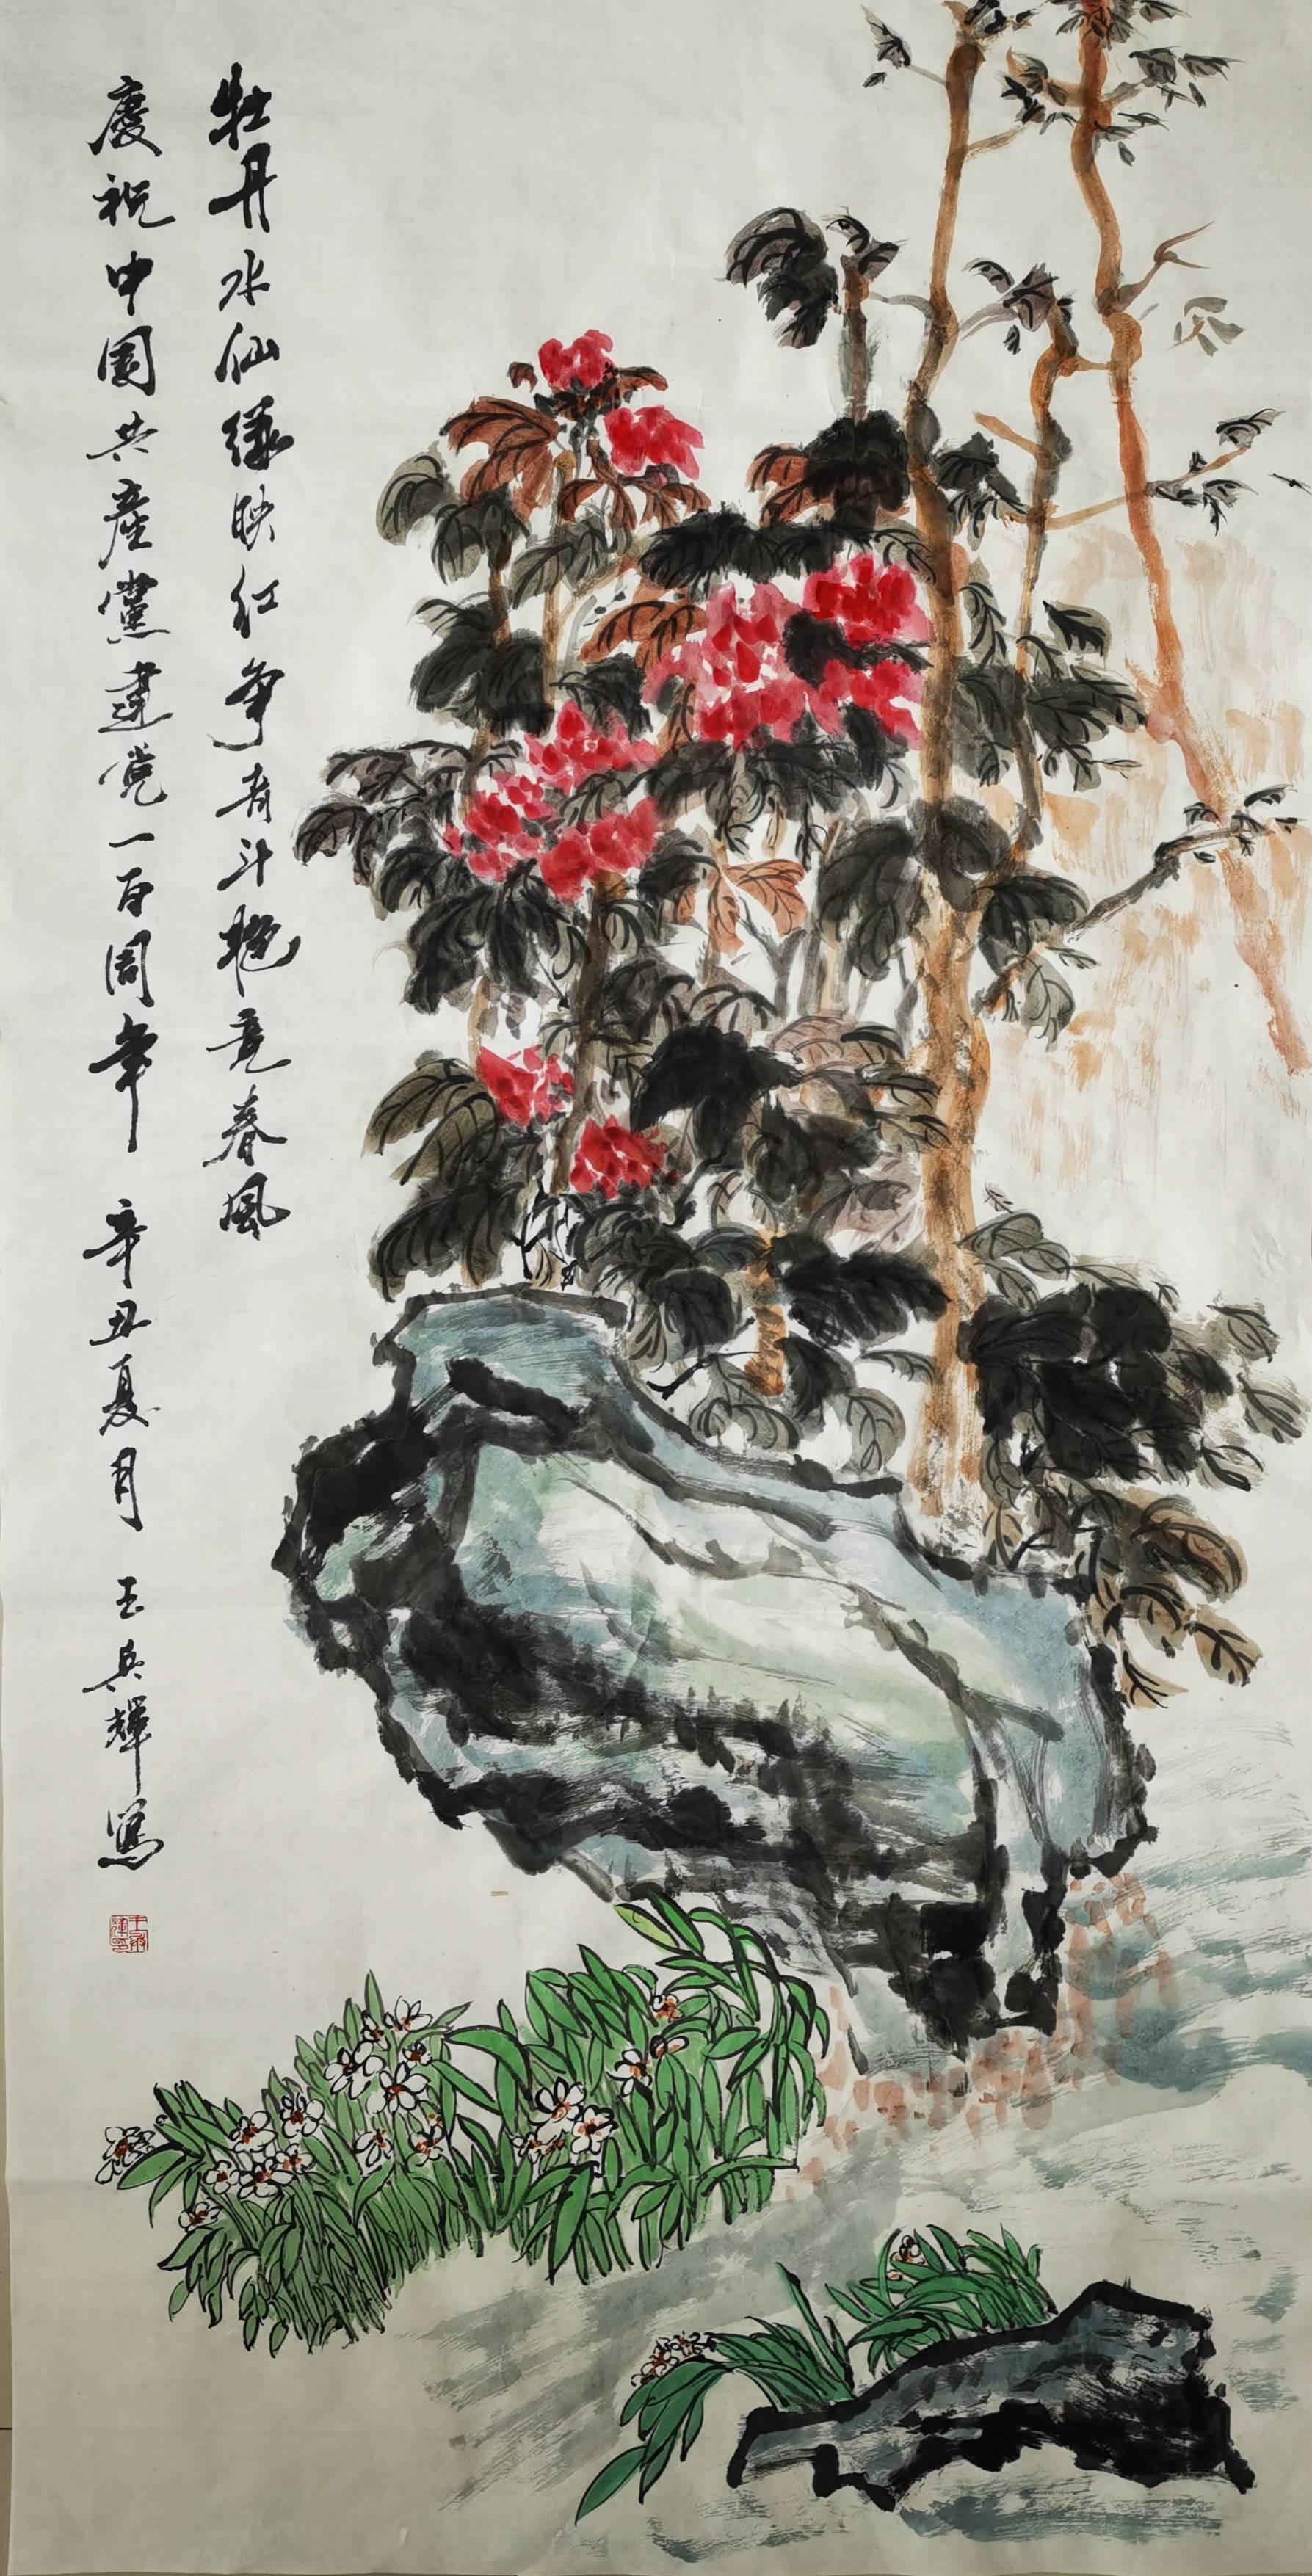 牡丹水仙绿映红争奇斗艳竞春風
慶祝中國共産黨建党一百周年 辛丑夏月 王兵輝寫